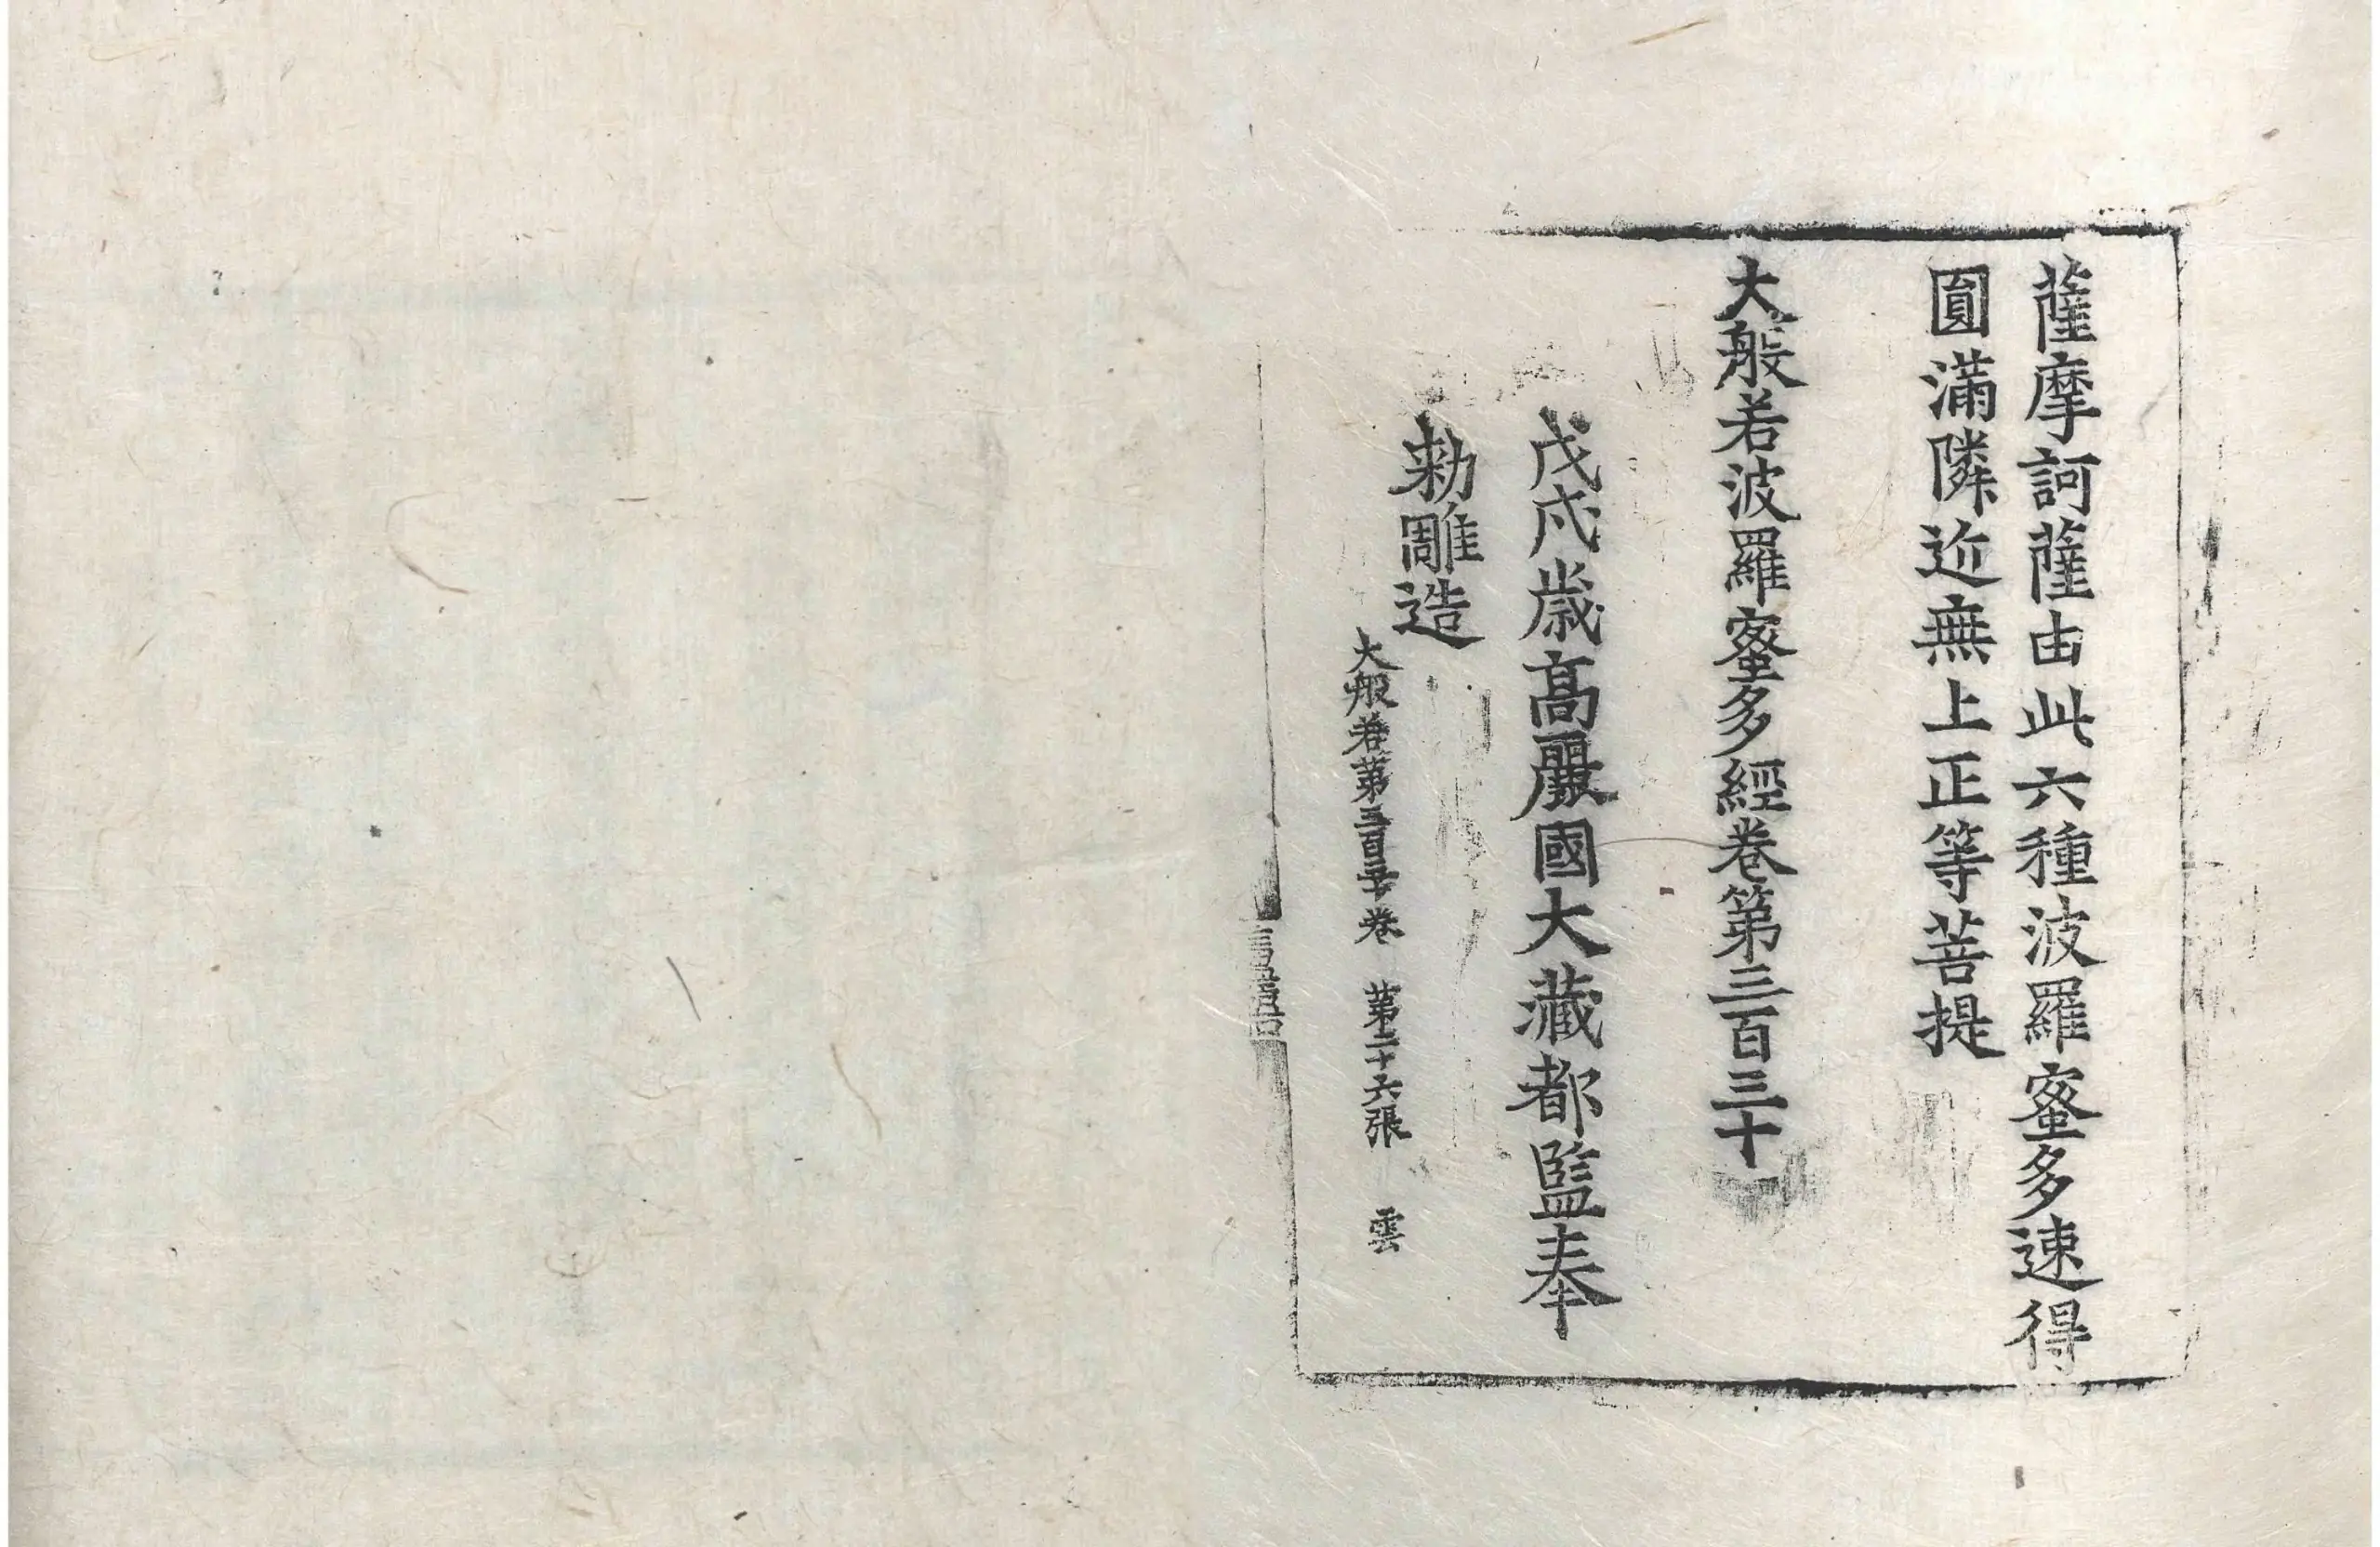 薩摩訶薩由此六種波羅蜜多速得
圓滿隣近無上正等菩提
大般若波羅蜜多經卷第三百三十
戊戌歲高麗國大藏都監奉
勅雕造
大般若第三百三十卷 第二十六張 雲